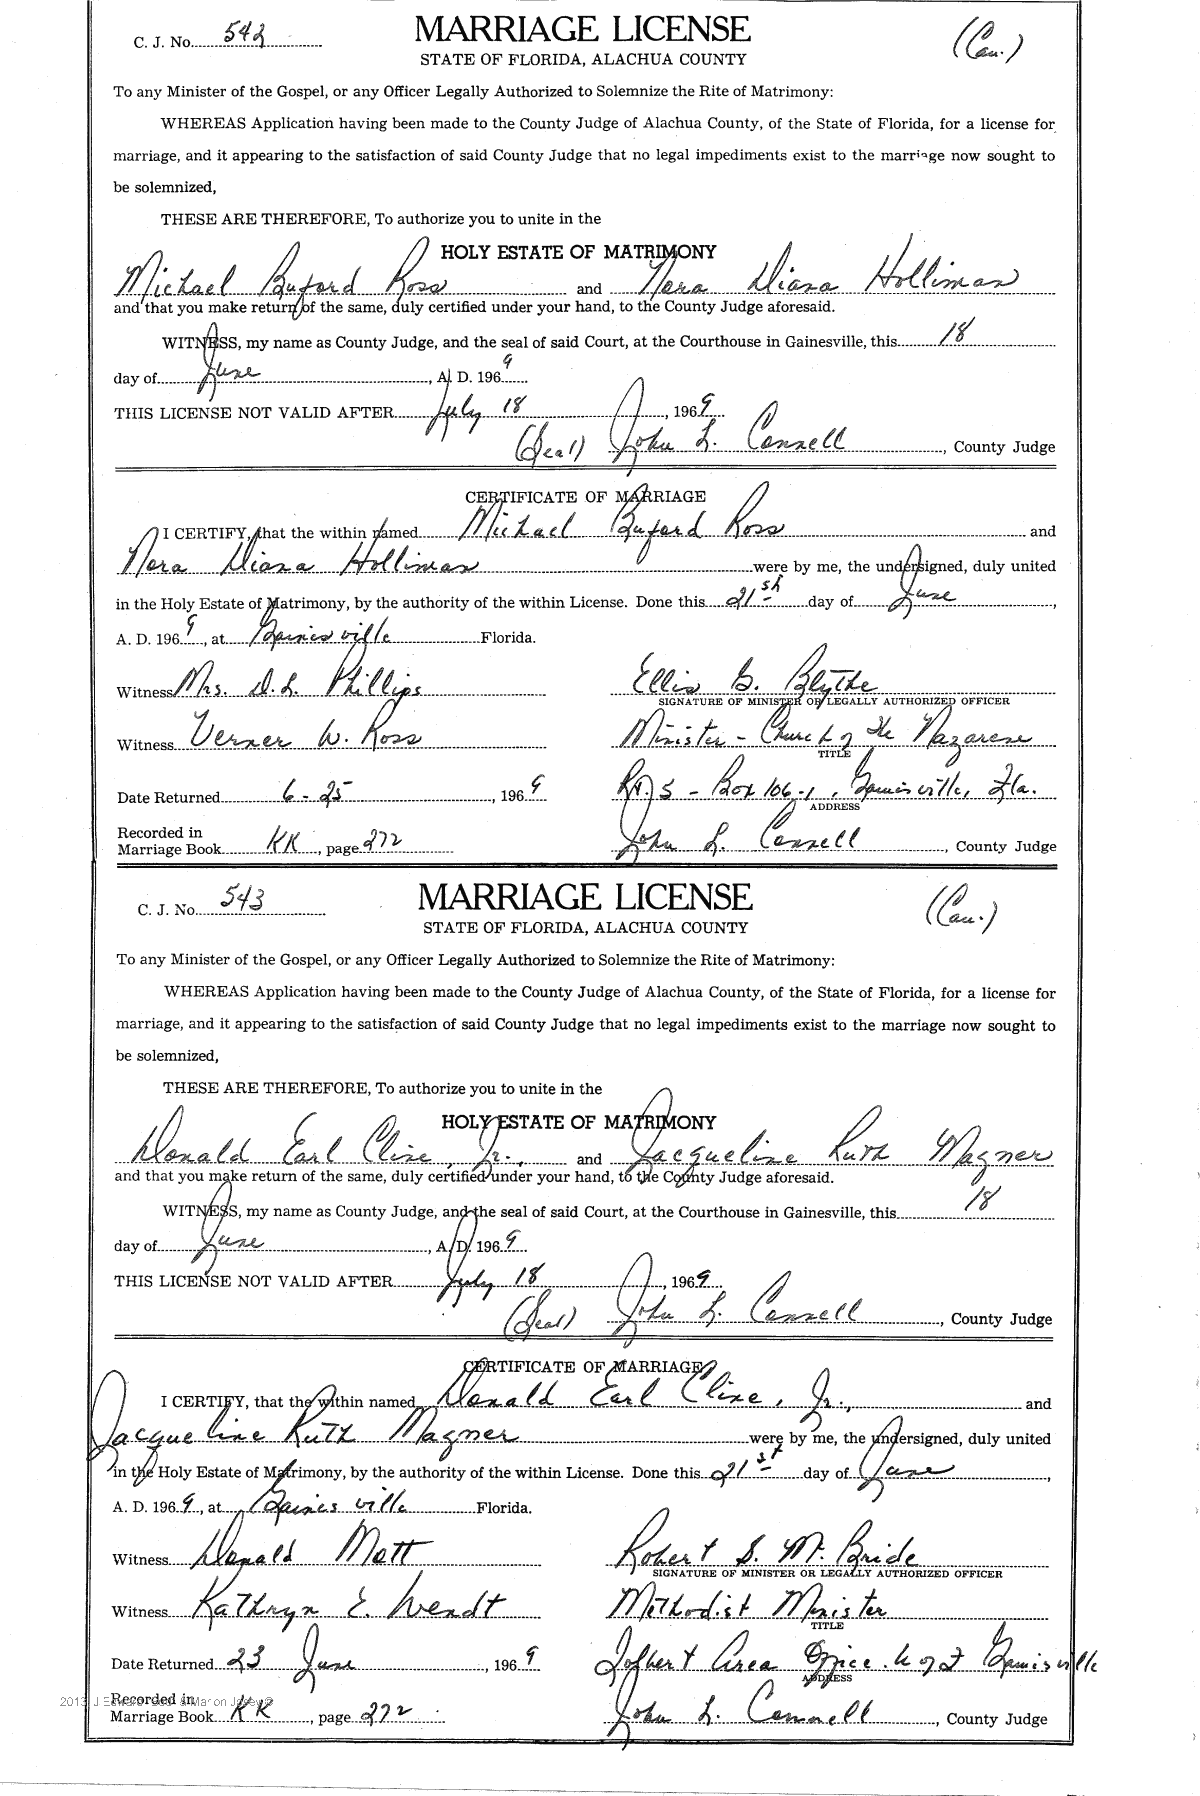 C. J. No. 542
MARRIAGE LICENSE
(Cau.)
STATE OF FLORIDA, ALACHUA COUNTY
To any Minister of the Gospel, or any Officer Legally Authorized to Solemnize the Rite of Matrimony:
WHEREAS Application having been made to the County Judge of Alachua County, of the State of Florida, for a license for
marriage, and it appearing to the satisfaction of said County Judge that no legal impediments exist to the marriage now sought to
be solemnized,
THESE ARE THEREFORE, To authorize you to unite in the
HOLY ESTATE OF MATRIMONY
Michael Buford Ross and Nora Diana Holliman
and that you make return of the same, duly certified under your hand, to the County Judge aforesaid.
WITNESS, my name as County Judge, and the seal of said Court, at the Courthouse in Gainesville, this 18
day of June, A. D. 1969
THIS LICENSE NOT VALID AFTER July 18, 1969
(Seal) John L. Connell, County Judge
CERTIFICATE OF MARRIAGE
I CERTIFY, that the within named Michael Buford Ross and
Nora Diana Holliman were by me, the undersigned, duly united
in the Holy Estate of Matrimony, by the authority of the within License. Done this 21st day of June,
A. D. 1969, at Gainesville Florida.
Witness Mrs. D. L. Phillips Ellis G. Blythe
SIGNATURE OF MINISTER OR LEGALLY AUTHORIZED OFFICER
Witness Verner W. Ross Minister - Church of the Nazarene
TITLE
Date Returned 6-25, 1969 Rt. 5 - Box 106-1, Gainesville, Fla.
ADDRESS
Recorded in
Marriage Book KK, page 272 John L. Connell, County Judge
C. J. No. 543
MARRIAGE LICENSE
(Cau.)
STATE OF FLORIDA, ALACHUA COUNTY
To any Minister of the Gospel, or any Officer Legally Authorized to Solemnize the Rite of Matrimony:
WHEREAS Application having been made to the County Judge of Alachua County, of the State of Florida, for a license for
marriage, and it appearing to the satisfaction of said County Judge that no legal impediments exist to the marriage now sought to
be solemnized,
THESE ARE THEREFORE, To authorize you to unite in the
HOLY ESTATE OF MATRIMONY
Donald Earl Cline, Jr., and Jacqueline Ruth Magner
and that you make return of the same, duly certified under your hand, to the County Judge aforesaid.
WITNESS, my name as County Judge, and the seal of said Court, at the Courthouse in Gainesville, this 18
day of June, A. D. 1969
THIS LICENSE NOT VALID AFTER July 18, 1969
(Seal) John L. Connell, County Judge
CERTIFICATE OF MARRIAGE
I CERTIFY, that the within named Donald Earl Cline, Jr., and
Jacqueline Ruth Magner were by me, the undersigned, duly united
in the Holy Estate of Matrimony, by the authority of the within License. Done this 21st day of June,
A. D. 1969, at Gainesville Florida.
Witness Donald Mott Robert S. McBride
SIGNATURE OF MINISTER OR LEGALLY AUTHORIZED OFFICER
Witness Kathryn E. Wendt Methodist Minister
TITLE
Date Returned 23 June, 1969 Tolbert Area Office. U of F Gainesville
ADDRESS
Recorded in
Marriage Book KK, page 272 John L. Connell, County Judge